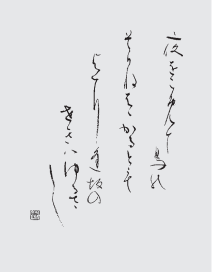 夜をこめて鳥の
そらねはかるとも
よに逢坂の
せきハゆるさ
し